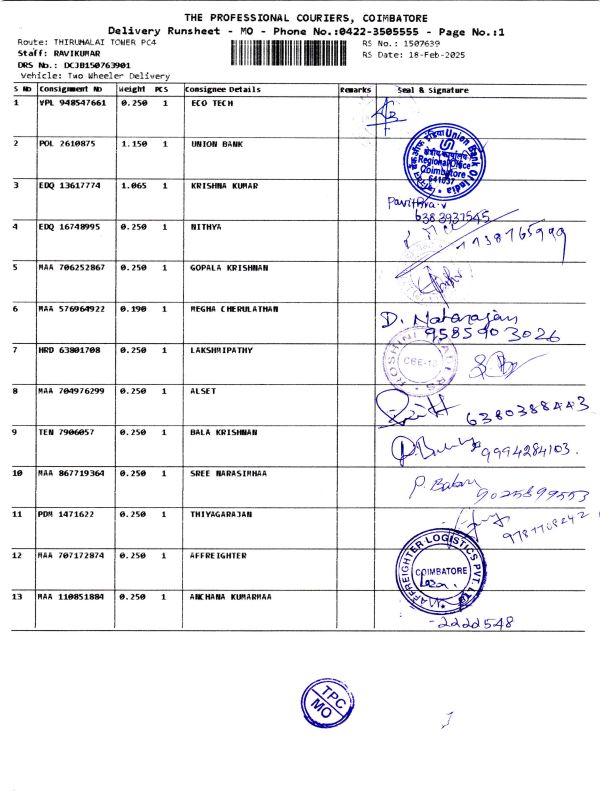 THE PROFESSIONAL COURIERS, COIMBATORE
Delivery Runsheet - MO - Phone No.:0422-3505555 - Page No.:1
Route: THIRUMALAI TOWER PC4 RS No.: 1507639
Staff: RAVIKUMAR RS Date: 18-Feb-2025
DRS No.: DCJB150763901
Vehicle: Two Wheeler Delivery
S No Consignment No Weight PCS Consignee Details Remarks Seal & Signature
1 VPL 948547661 0.250 1 ECO TECH
2 POL 2610875 1.150 1 UNION BANK
Union Bank Of India
Regional Office
Coimbatore
641037
3 EDQ 13617774 1.065 1 KRISHNA KUMAR
Pavithra.v
6383937545
4 EDQ 16748995 0.250 1 NITHYA
5 MAA 706252867 0.250 1 GOPALA KRISHNAN
6 MAA 576964922 0.190 1 MEGHA CHERULATHAN D. Natarajan
9585903026
7 HRD 63801708 0.250 1 LAKSHMIPATHY
CBE-18
8 MAA 704976299 0.250 1 ALSET 6380388443
9 TEN 7906057 0.250 1 BALA KRISHNAN 9994284103.
10 MAA 867719364 0.250 1 SREE NARASIMHAA P. Baban
9025899553
11 PDM 1471622 0.250 1 THIYAGARAJAN
12 MAA 707172874 0.250 1 AFFREIGHTER
AFFREIGHTER LOGISTICS PVT. LTD
COIMBATORE
13 MAA 110851884 0.250 1 ANCHANA KUMARMAA
-2222548
TPC
MO